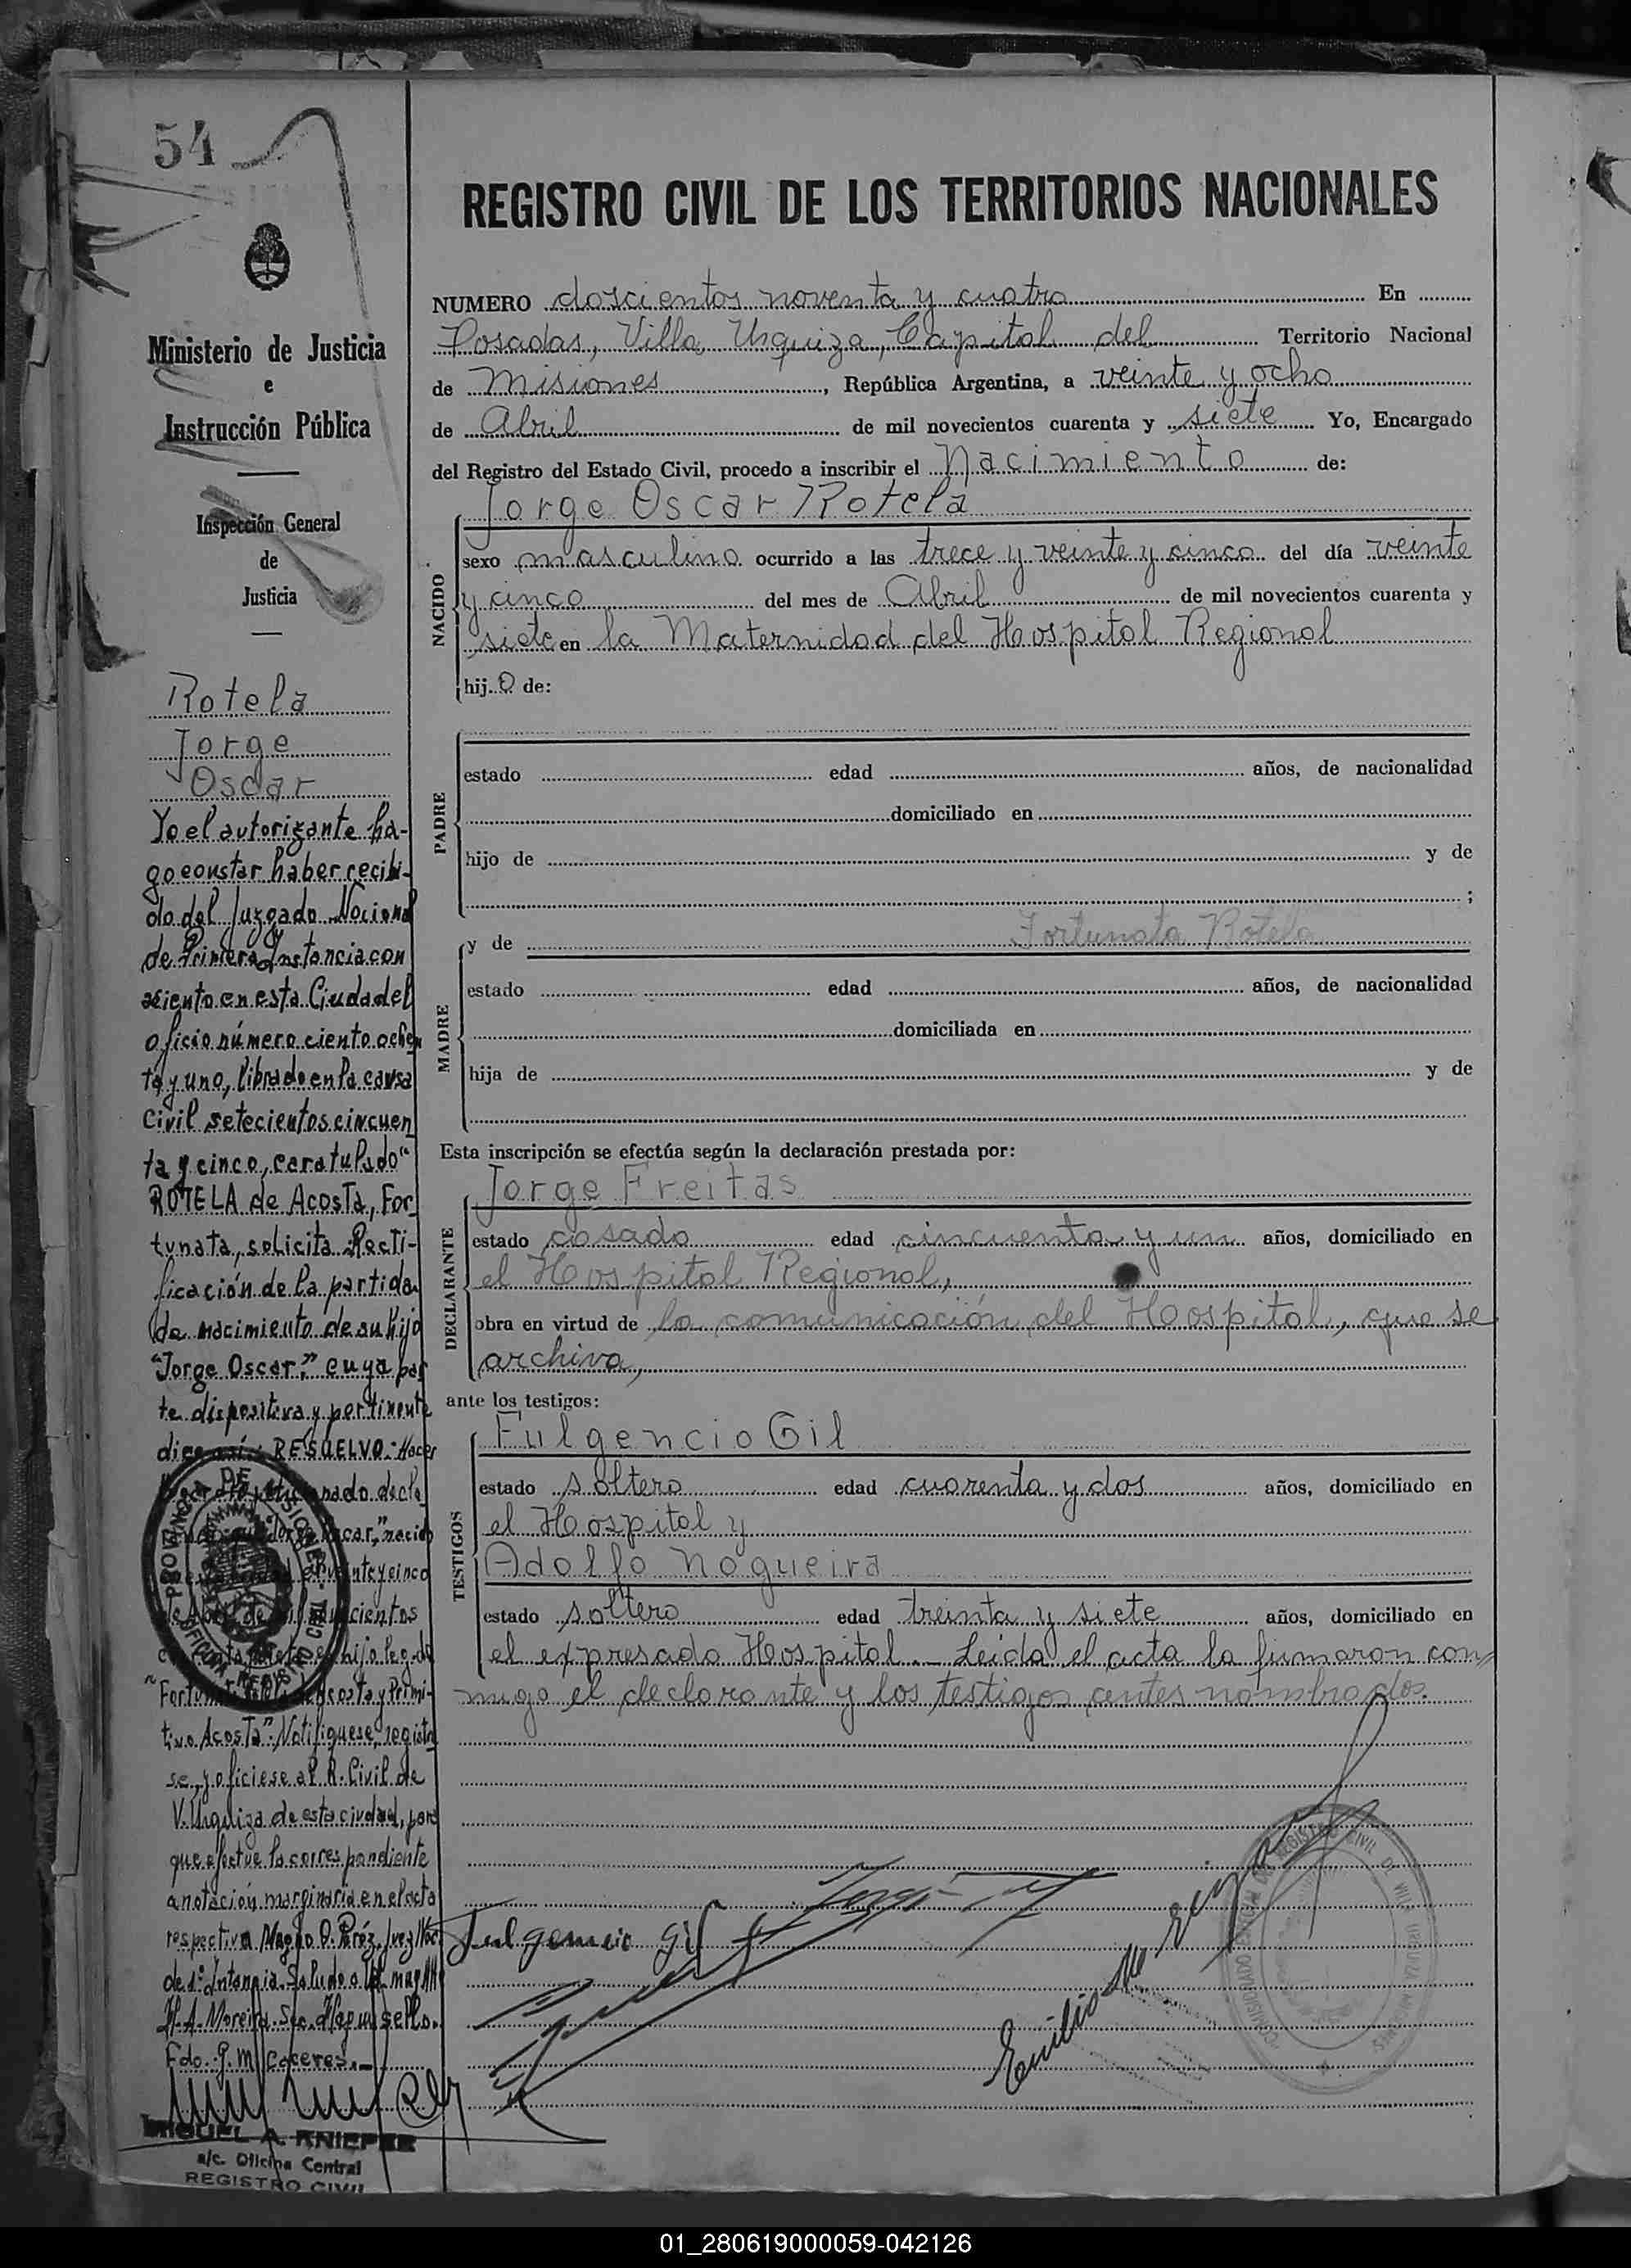 54
REGISTRO CIVIL DE LOS TERRITORIOS NACIONALES
Ministerio de Justicia
e
Instrucción Pública
Inspección General
de
Justicia
Rotela
Jorge
Oscar
Yo el autorizante ha-
go constar haber recibi-
do del Juzgado Nacional
de Primera Instancia con
asiento en esta Ciudad el
oficio número ciento ochen
ta y uno, librado en la causa
Civil setecientos cincuen
ta y cinco, caratulado "
ROTELA de Acosta, For
tunata, solicita Recti-
ficación de la partida
de nacimiento de su hijo
"Jorge Oscar", cuya par
te dispositiva y pertinente
dice así: RESUELVO: Hacer
decla
Oscar", nacido
veinte y cinco
de Abril de mil novecientos
hijo leg. de
"Fortunata Rotela de Acosta y Primi-
tivo Acosta". Notifíquese, regístre
se, y ofíciese al R. Civil de
V. Urquiza de esta ciudad, para
que efectúe la correspondiente
anotación marginaria en el acta
respectiva
de 1ª Saludo a
H. A. Moreira. Sec. Hay un sello.
Fdo. P. M. Caceres.-
MIGUEL A. KNIEPER
a/c. Oficina Central
REGISTRO CIVIL
PROVINCIA DE MISIONES
OFICINA REGISTRO CIVIL
NUMERO doscientos noventa y cuatro En
Posadas, Villa Urquiza, Capital del Territorio Nacional
de Misiones, República Argentina, a veinte y ocho
de Abril de mil novecientos cuarenta y siete Yo, Encargado
del Registro del Estado Civil, procedo a inscribir el Nacimiento de:
NACIDO
Jorge Oscar Rotela
sexo masculino ocurrido a las trece y veinte y cinco del día veinte
y cinco del mes de Abril de mil novecientos cuarenta y
siete en la Maternidad del Hospital Regional
hijo de:
PADRE
estado edad años, de nacionalidad
domiciliado en
hijo de y de
;
MADRE
y de Fortunata Rotela
estado edad años, de nacionalidad
domiciliada en
hija de y de
Esta inscripción se efectúa según la declaración prestada por:
DECLARANTE
Jorge Freitas
estado casado edad cincuenta y un años, domiciliado en
el Hospital Regional,
obra en virtud de la comunicación del Hospital, que se
archiva,
ante los testigos:
TESTIGOS
Fulgencio Gil
estado soltero edad cuarenta y dos años, domiciliado en
el Hospital y
Adolfo Nogueira
estado soltero edad treinta y siete años, domiciliado en
el expresado Hospital.- Leída el acta la firmaron con-
migo el declarante y los testigos antes nombrados.
Fulgencio Gil
COMISIONADO ESCOLAR DEL REGISTRO CIVIL DE VILLA URQUIZA MISIONES
01_280619000059-042126